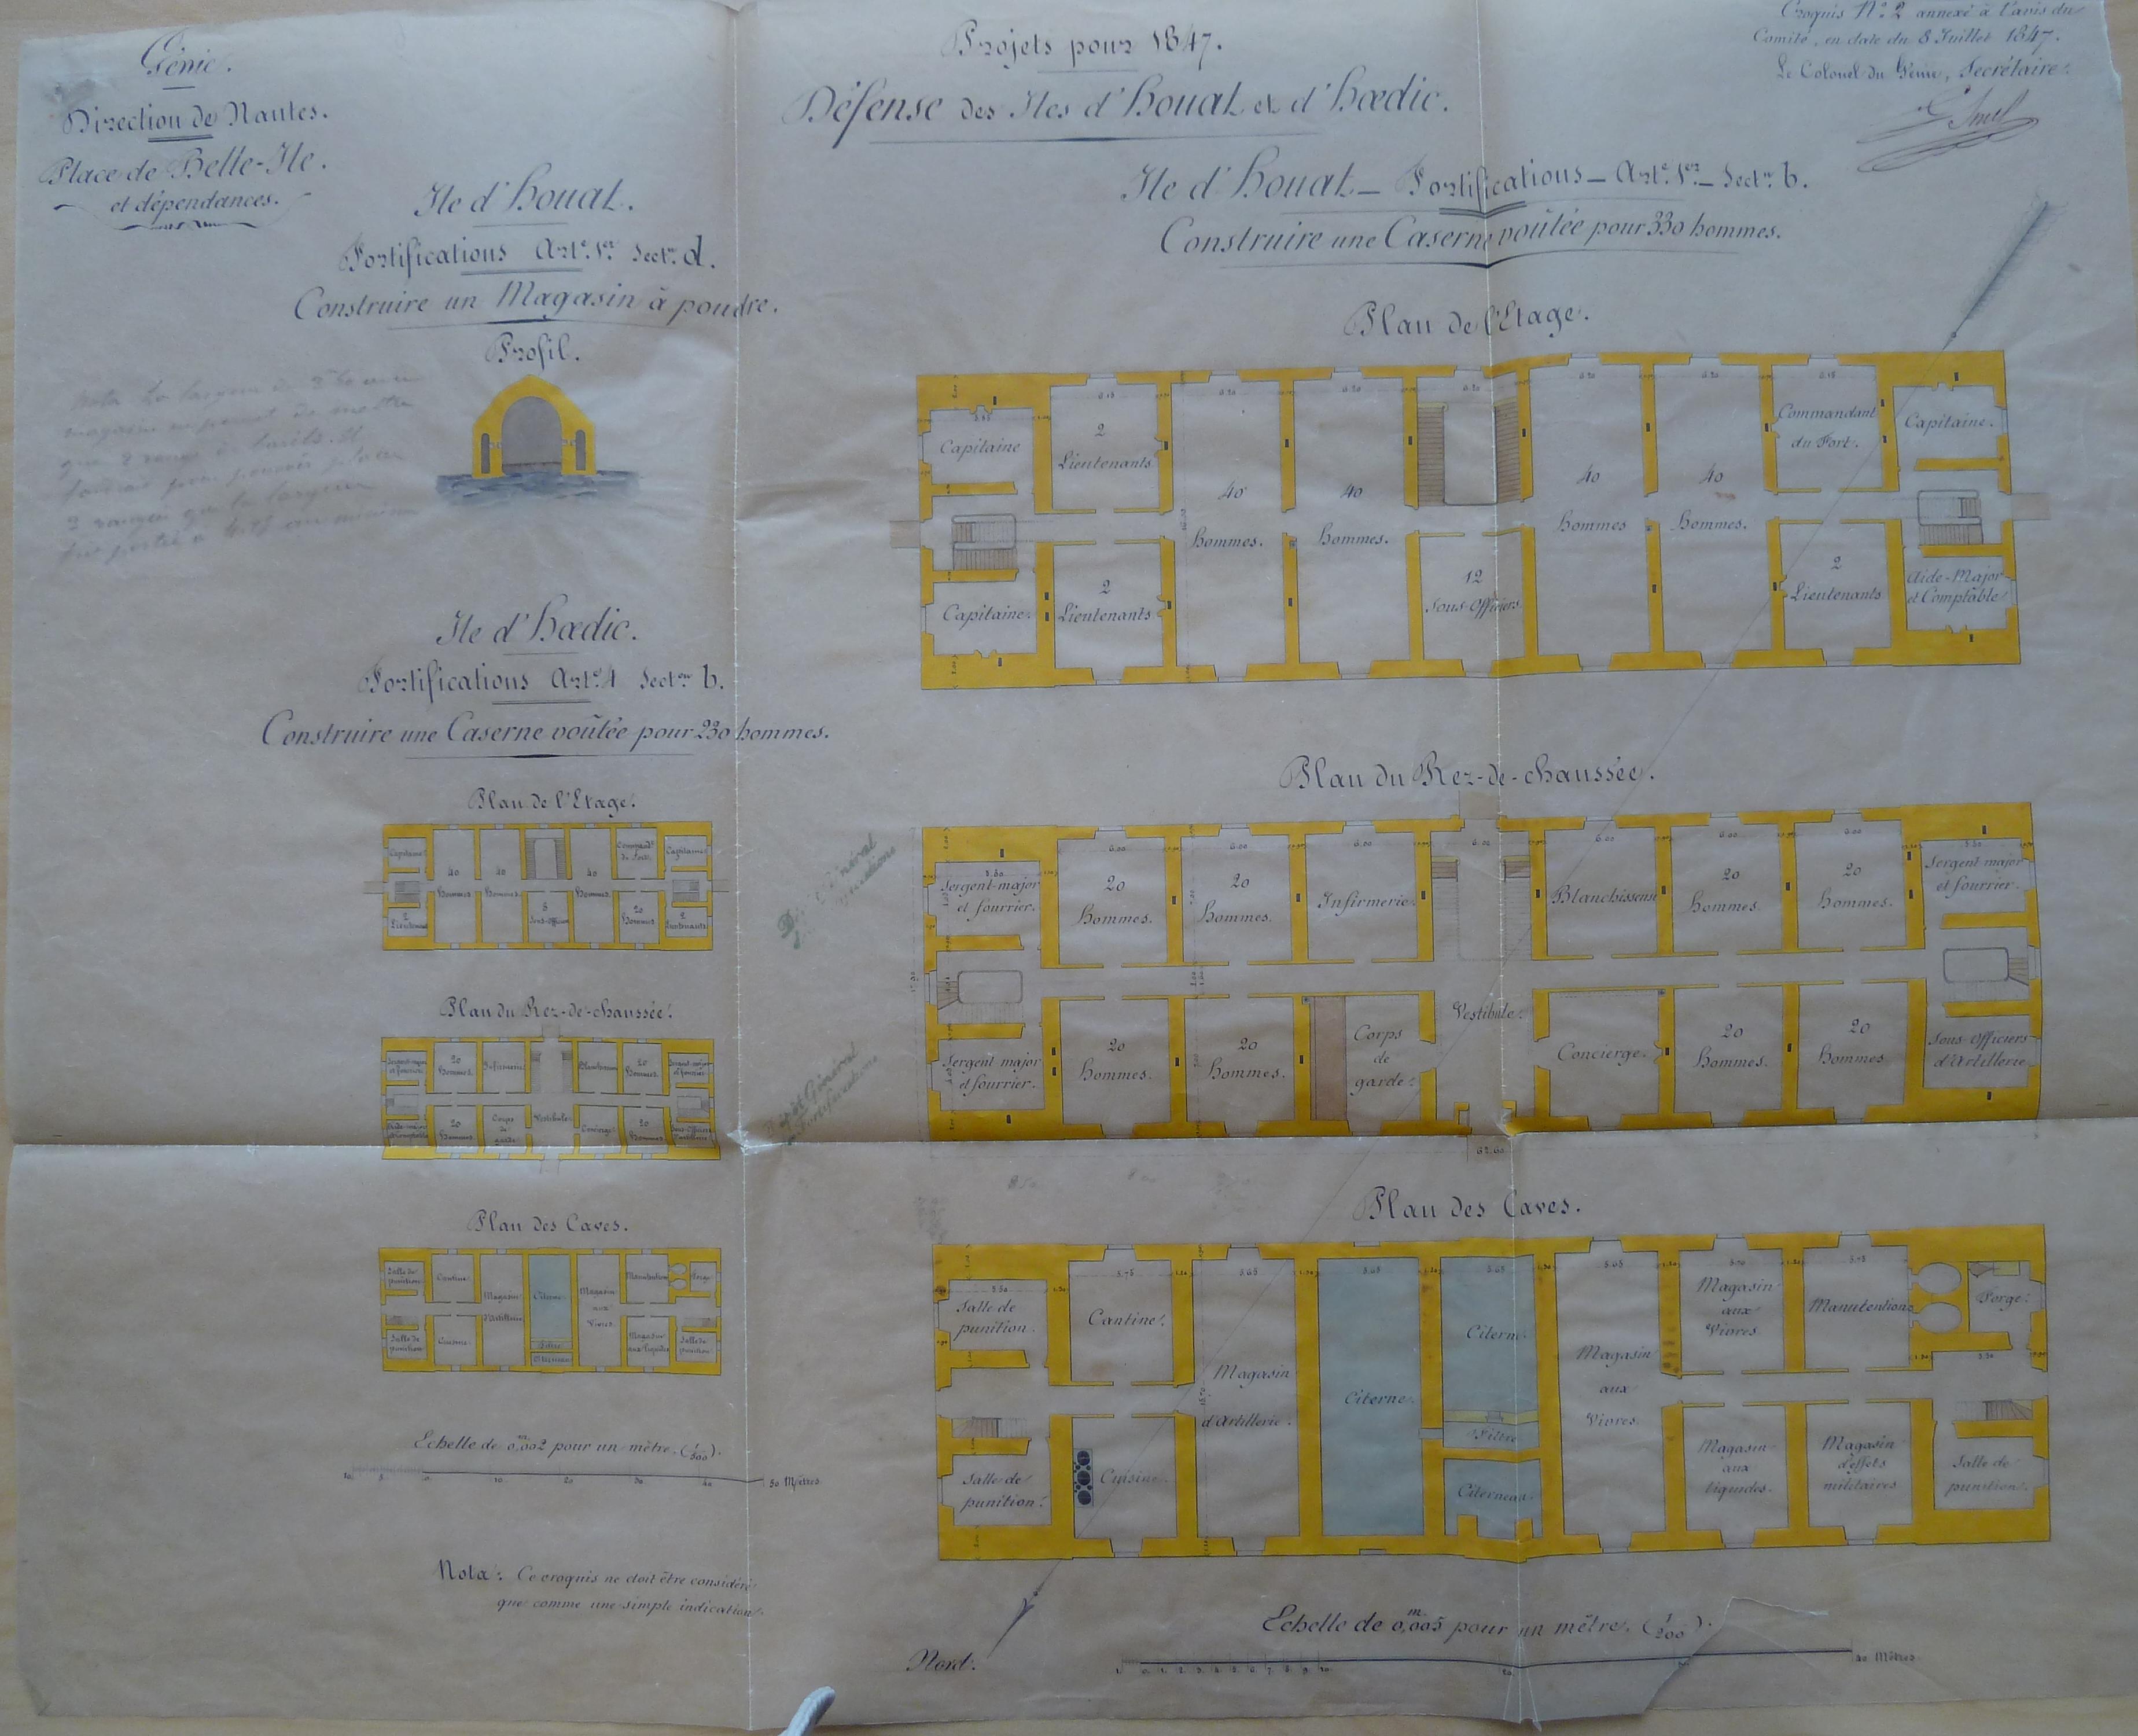 Génie.
Direction de Nantes.
Place de Belle-Ile.
et dépendances.
Projets pour 1847.
Défense des Iles d'houat et d'hœdic.
Croquis N.º 2 annexé à l'avis du
Comité, en date du 8 Juillet 1847.
Le Colonel du Génie, Secrétaire.
Ile d'houat.
Fortifications Art.e 1er Sect.on d.
Construire un Magasin à poudre.
Profil.
Ile d'hœdic.
Fortifications Art.e 4 Sect.on b.
Construire une Caserne voûtée pour 230 hommes.
Plan de l'Etage.
Capitaine
40
hommes
40
hommes
40
hommes
Command.t
du Fort.
Capitaine
2
Lieutenants
8
Sous-Officiers
20
hommes
2
Lieutenants
Plan du Rez-de-chaussée.
Sergent-major
et fourrier
20
hommes
Infirmerie
Blanchisseuse
20
hommes
Sergent-major
et fourrier
Aide-major
et Comptable
20
hommes
Corps
de
garde
Vestibule
Concierge
20
hommes
Sous-Officiers
d'Artillerie
Plan des Caves.
Salle de
punition
Cantine
Magasin
d'Artillerie
Citerne
Magasin
aux
Vivres
Manutention
Forge
Salle de
punition
Cuisine
Filtre
Citerneau
Magasin
aux liquides
Salle de
punition
Echelle de 0,m002 pour un mètre. (1/500).
10 5 0 10 20 30 40 50 Mètres
Nota: Ce croquis ne doit être considéré
que comme une simple indication.
Ile d'houat — Fortifications — Art.e 1er — Sect.on b.
Construire une Caserne voûtée pour 330 hommes.
Plan de l'Etage.
Capitaine
2
Lieutenants
40
hommes.
40
hommes.
40
hommes
40
hommes.
Commandant
du Fort.
Capitaine.
Capitaine.
2
Lieutenants
12
Sous-Officiers
2
Lieutenants
Aide-Major
et Comptable
Plan du Rez-de-chaussée.
Sergent-major
et fourrier.
20
hommes.
20
hommes.
Infirmerie
Blanchisseuse
20
hommes.
20
hommes.
Sergent-major
et fourrier.
Sergent major
et fourrier.
20
hommes.
20
hommes.
Corps
de
garde
Vestibule
Concierge.
20
hommes.
20
hommes
Sous-Officiers
d'Artillerie
62.60
Dépôt Général
Fortifications
Plan des Caves.
Salle de
punition.
Cantine
Magasin
d'Artillerie.
Citerne.
Citerne
Filtre
Citerneau.
Magasin
aux
Vivres
Magasin
aux
Vivres
Manutention
Forge
Salle de
punition
Cuisine.
Magasin
aux
liquides.
Magasin
d'effets
militaires
Salle de
punition.
Nord.
Echelle de 0,m005 pour un mètre. (1/200).
1 0 1 2 3 4 5 6 7 8 9 10 20 40 Mètres